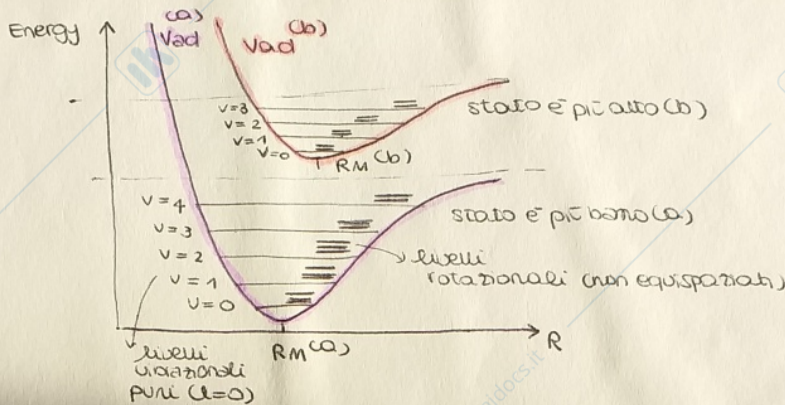 Energy
(a)
Vad
Vad (b)
v=3
v=2
v=1
v=0
RM (b)
stato è più alto (b)
v=4
v=3
v=2
v=1
v=0
stato è più basso (a)
livelli
rotazionali (non equispaziati)
RM (a)
R
livelli
vibrazionali
puri (l=0)